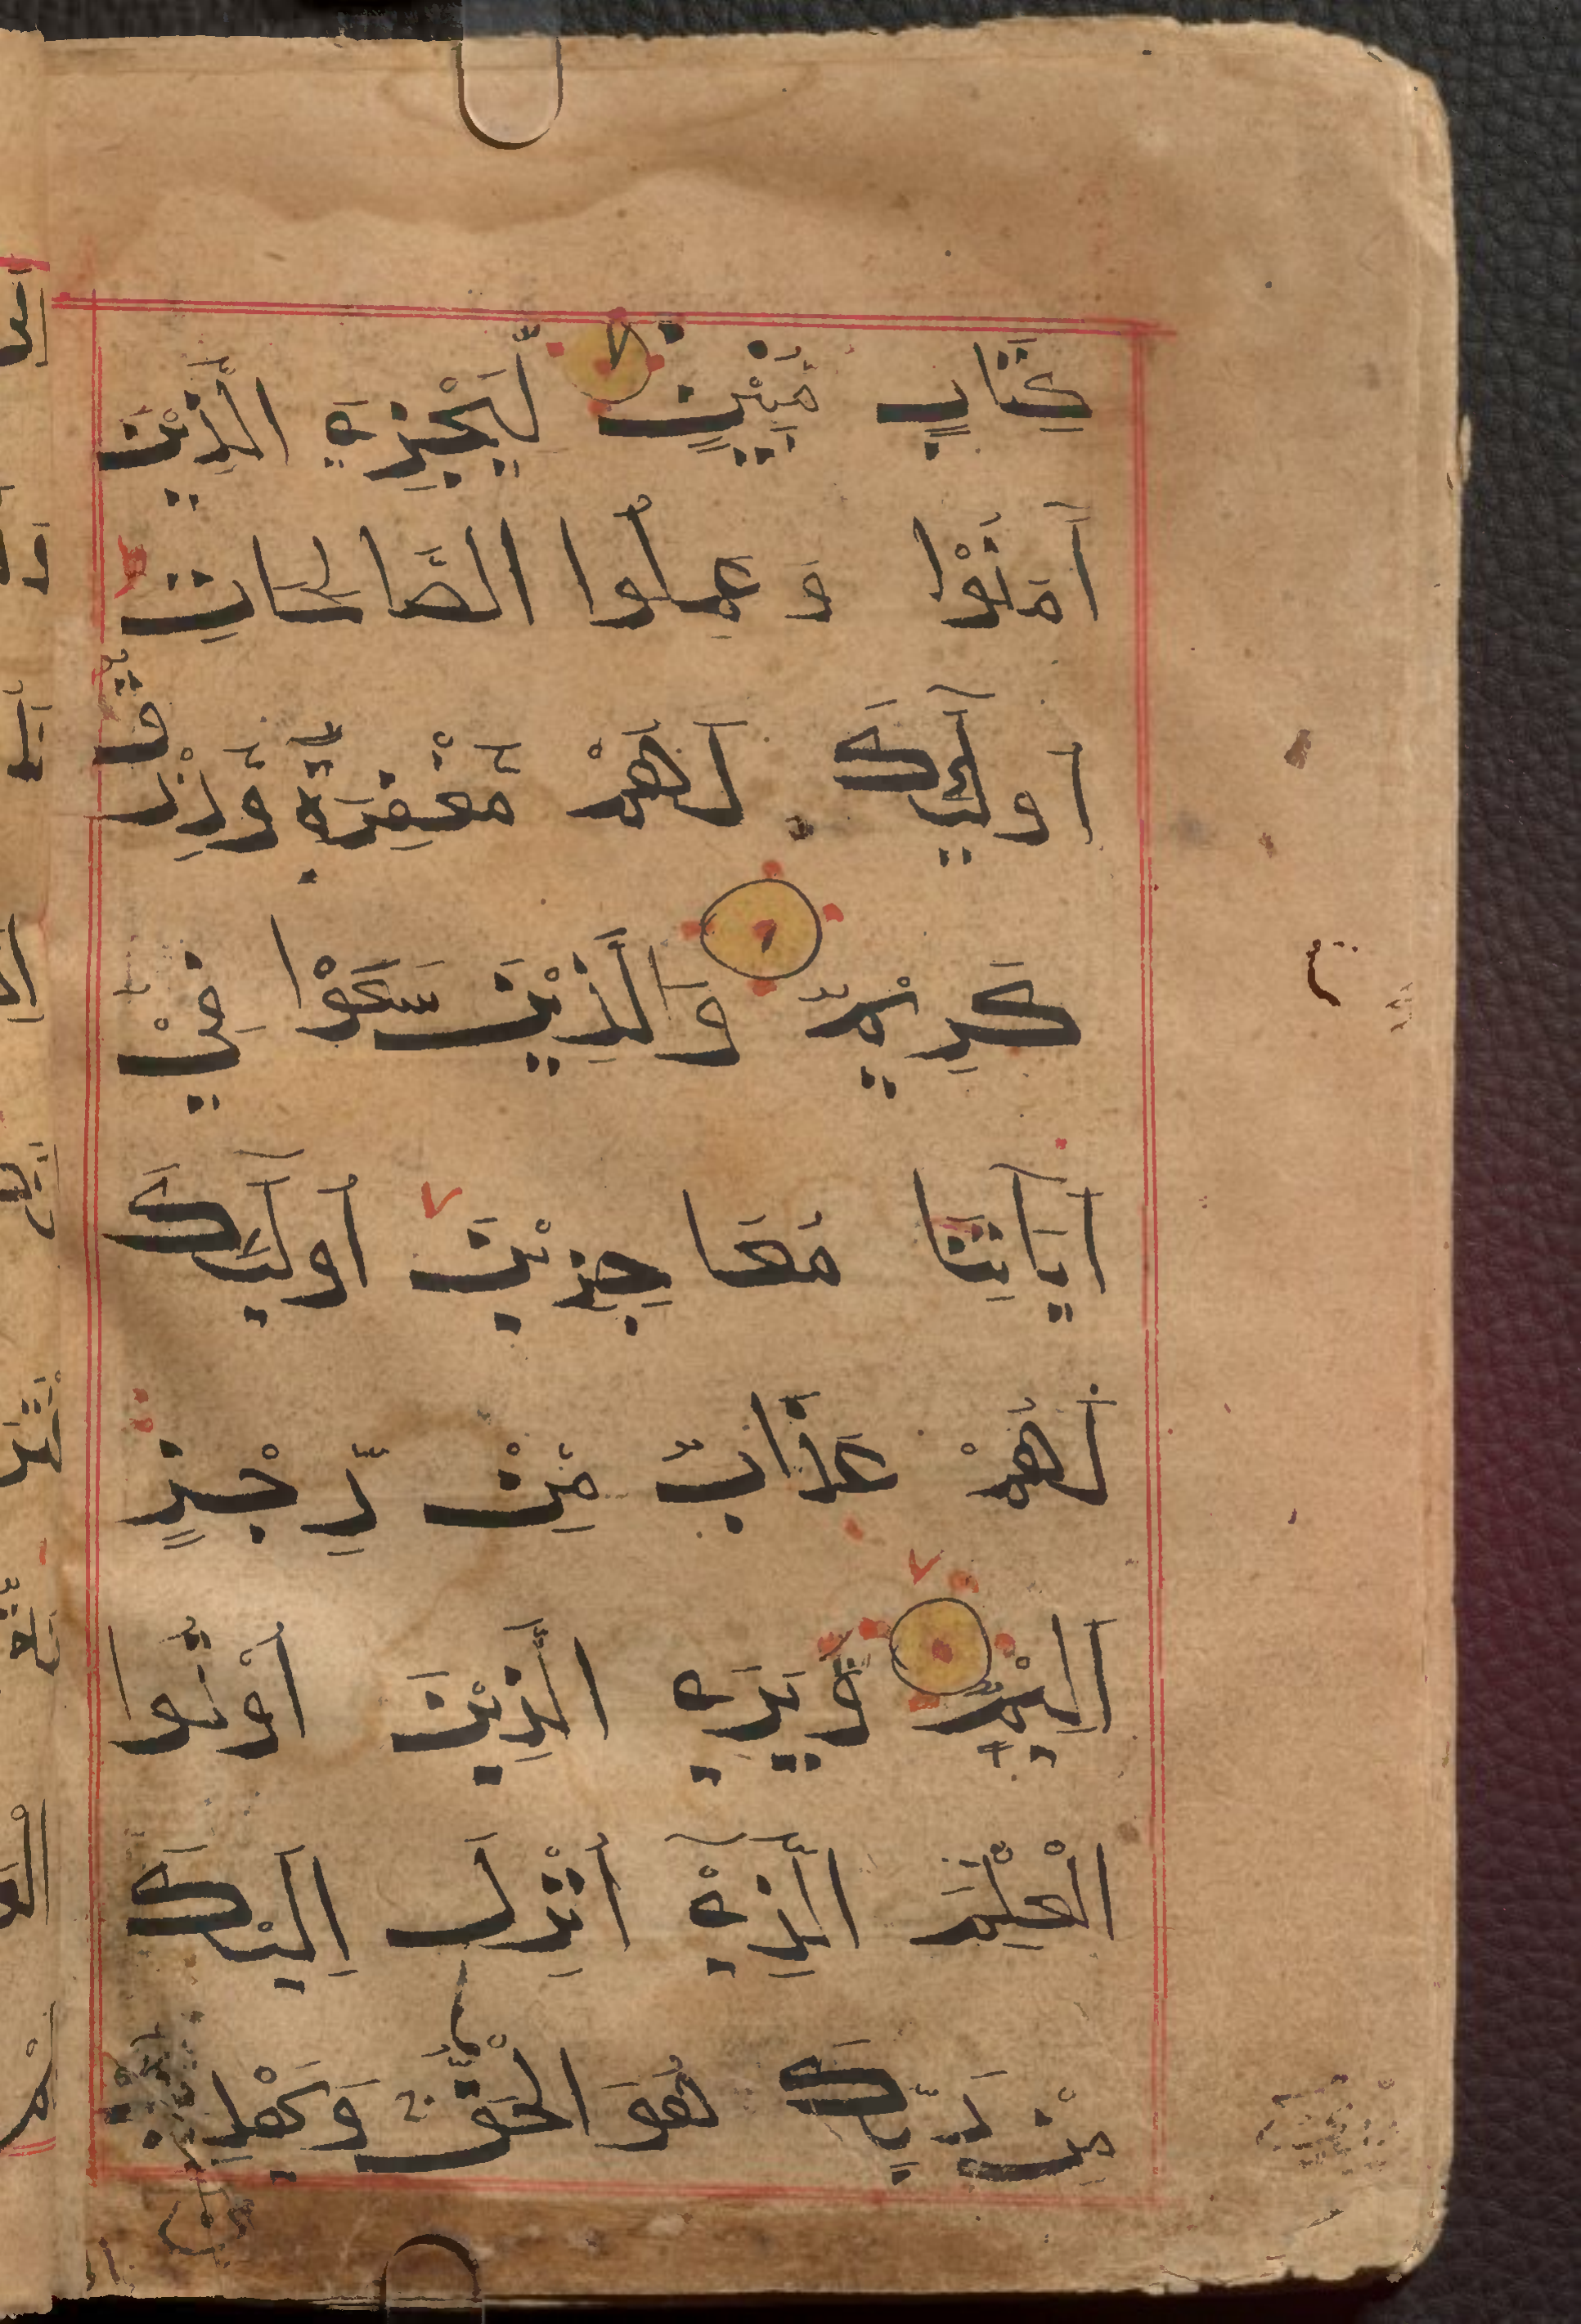 كِتَابٍ مُّبِيْنٍ لِّيَجْزِيَ الَّذِيْنَ
آمَنُوْا وَ عَمِلُوا الصَّالِحَاتِ
أُولٰٓئِكَ لَهُمْ مَّغْفِرَةٌ وَّرِزْقٌ
كَرِيْمٌ وَالَّذِيْنَ سَعَوْا فِيْ
آيَاتِنَا مُعَاجِزِيْنَ أُولٰٓئِكَ
لَهُمْ عَذَابٌ مِّنْ رِّجْزٍ
اَلِيْمٌ وَيَرَى الَّذِيْنَ أُوْتُوا
الْعِلْمَ الَّذِيْ أُنْزِلَ اِلَيْكَ
مِنْ رَّبِّكَ هُوَ الْحَقَّ وَيَهْدِيْ